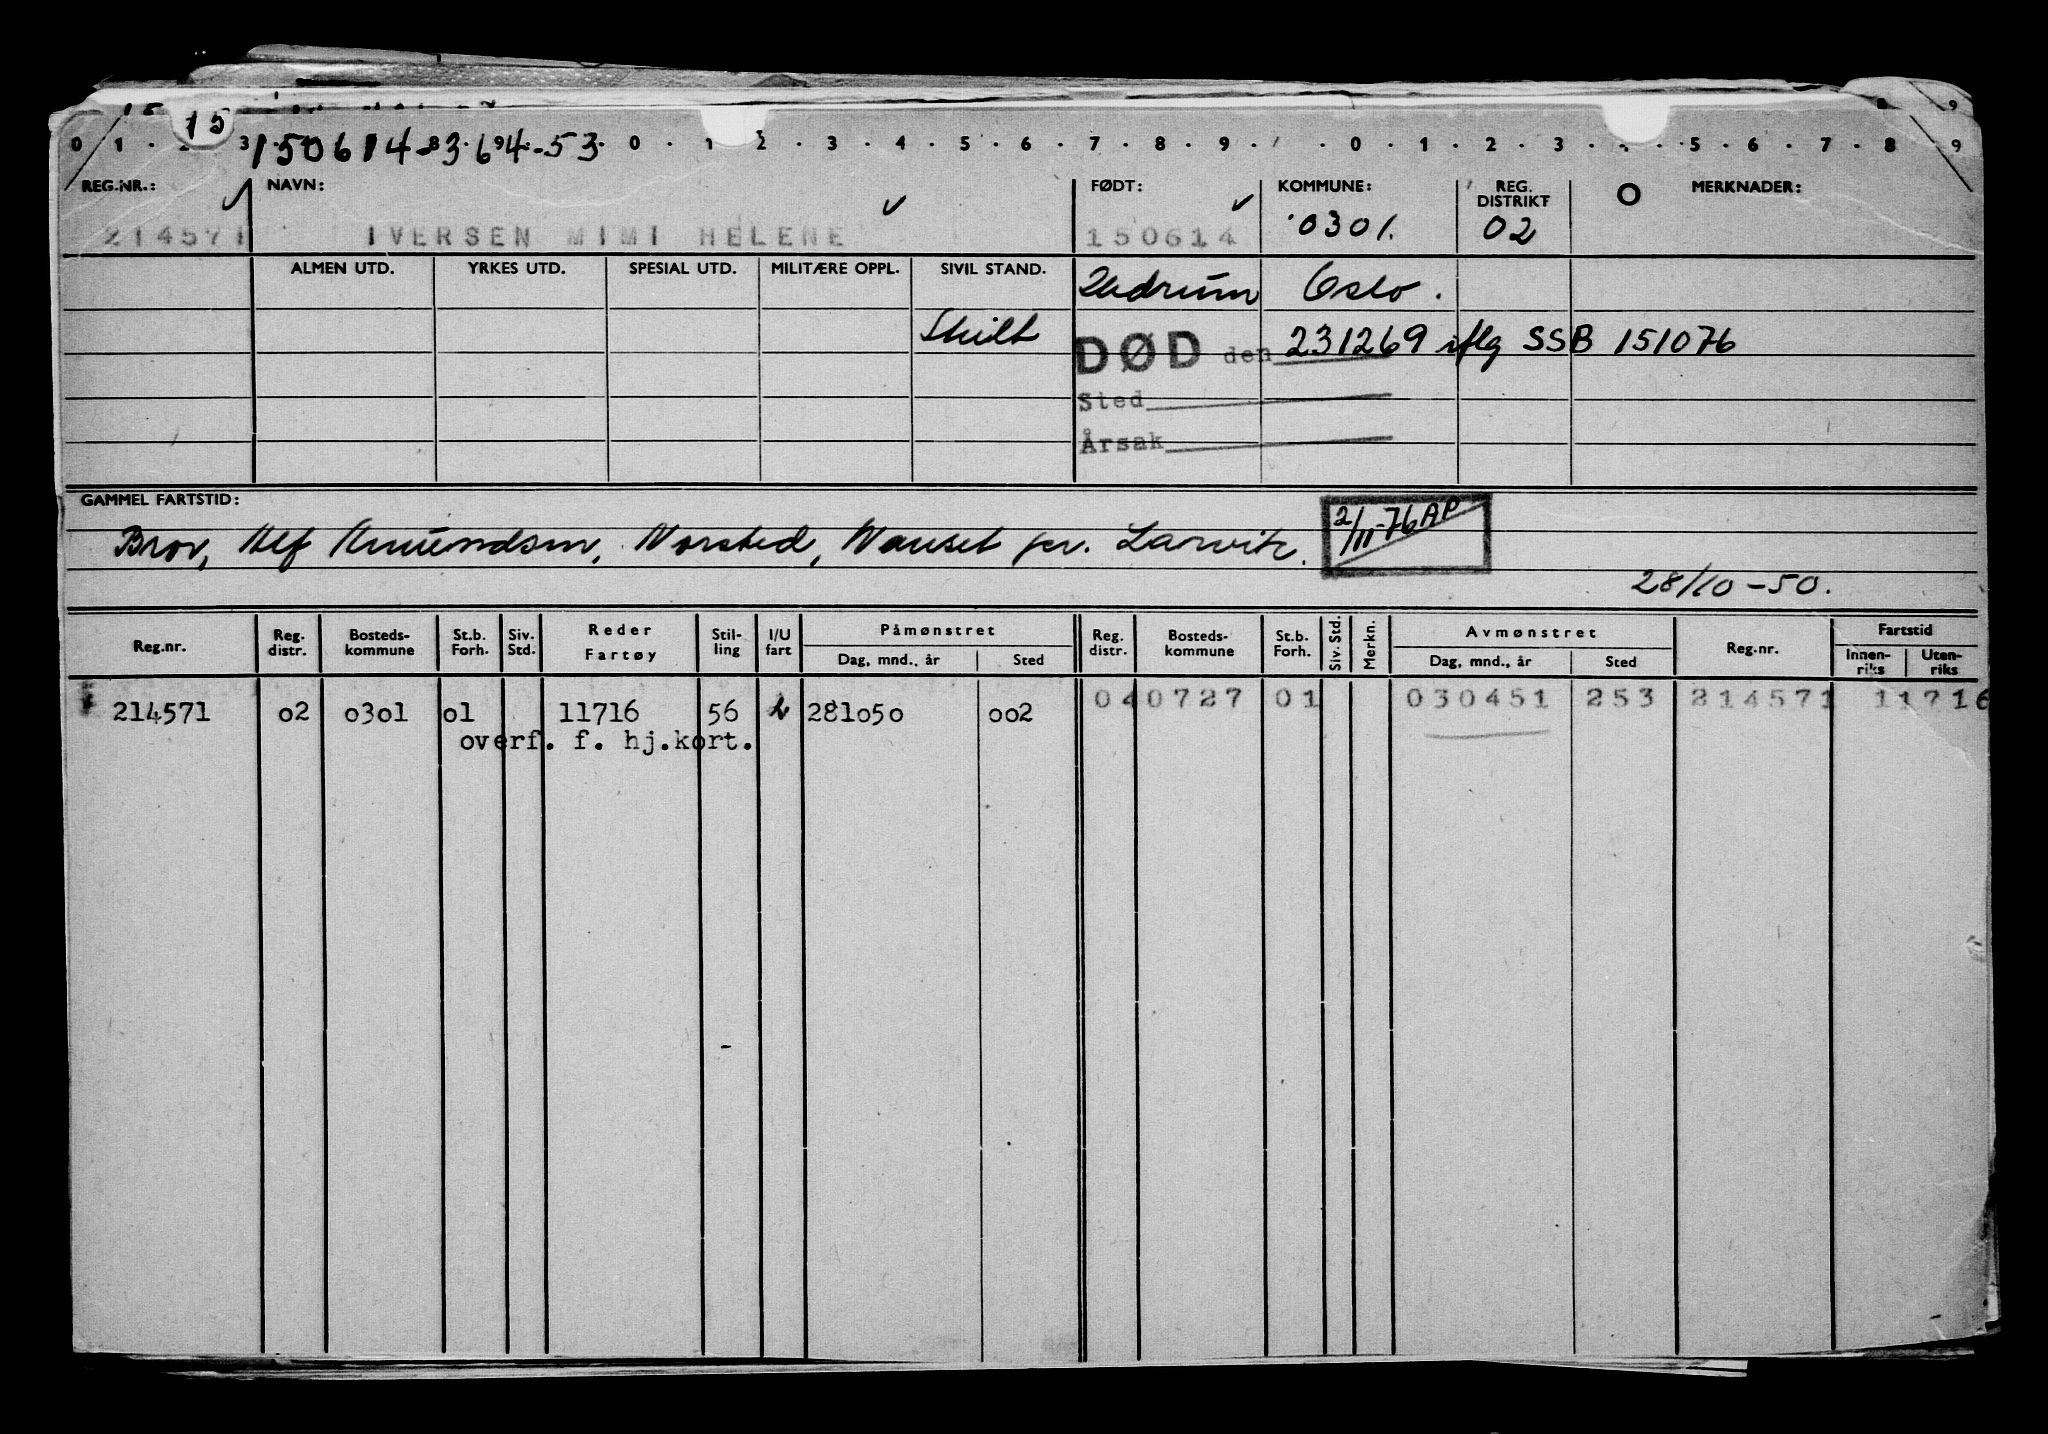 15
0 1 3 150614 83.694-53 0 . 1 2 . 3 . 4 . 5 . 6 . 7 . 8 . 9 . 0 . 1 . 2 . 3 . 5 . 6 . 7 . 8 9
REG.NR.: NAVN: FØDT: KOMMUNE: REG. DISTRIKT MERKNADER:
214571 IVERSEN MIMI HELENE 150614 0301. 02
ALMEN UTD. YRKES UTD. SPESIAL UTD. MILITÆRE OPPL. SIVIL STAND. Hedrum Oslo.
Skilt DØD den 231269 iflg SSB 151076
Sted
Årsak
GAMMEL FARTSTID:
Bror, Alf Amundsen, Norsted, Nanset pr. Larvik. 2/11-76 AP
28/10-50.
Reg.nr. Reg. distr. Bosteds- kommune St.b. Forh. Siv. Std. Reder Fartøy Stil- ling I/U fart Påmønstret Dag, mnd., år Sted Reg. distr. Bosteds- kommune St.b. Forh. Siv. Std. Merkn. Avmønstret Dag, mnd., år Sted Reg.nr. Fartstid Innen- riks Uten- riks
214571 02 0301 01 11716 56 2 281050 002 040727 01 030451 253 214571 11716
overf. f. hj.kort.